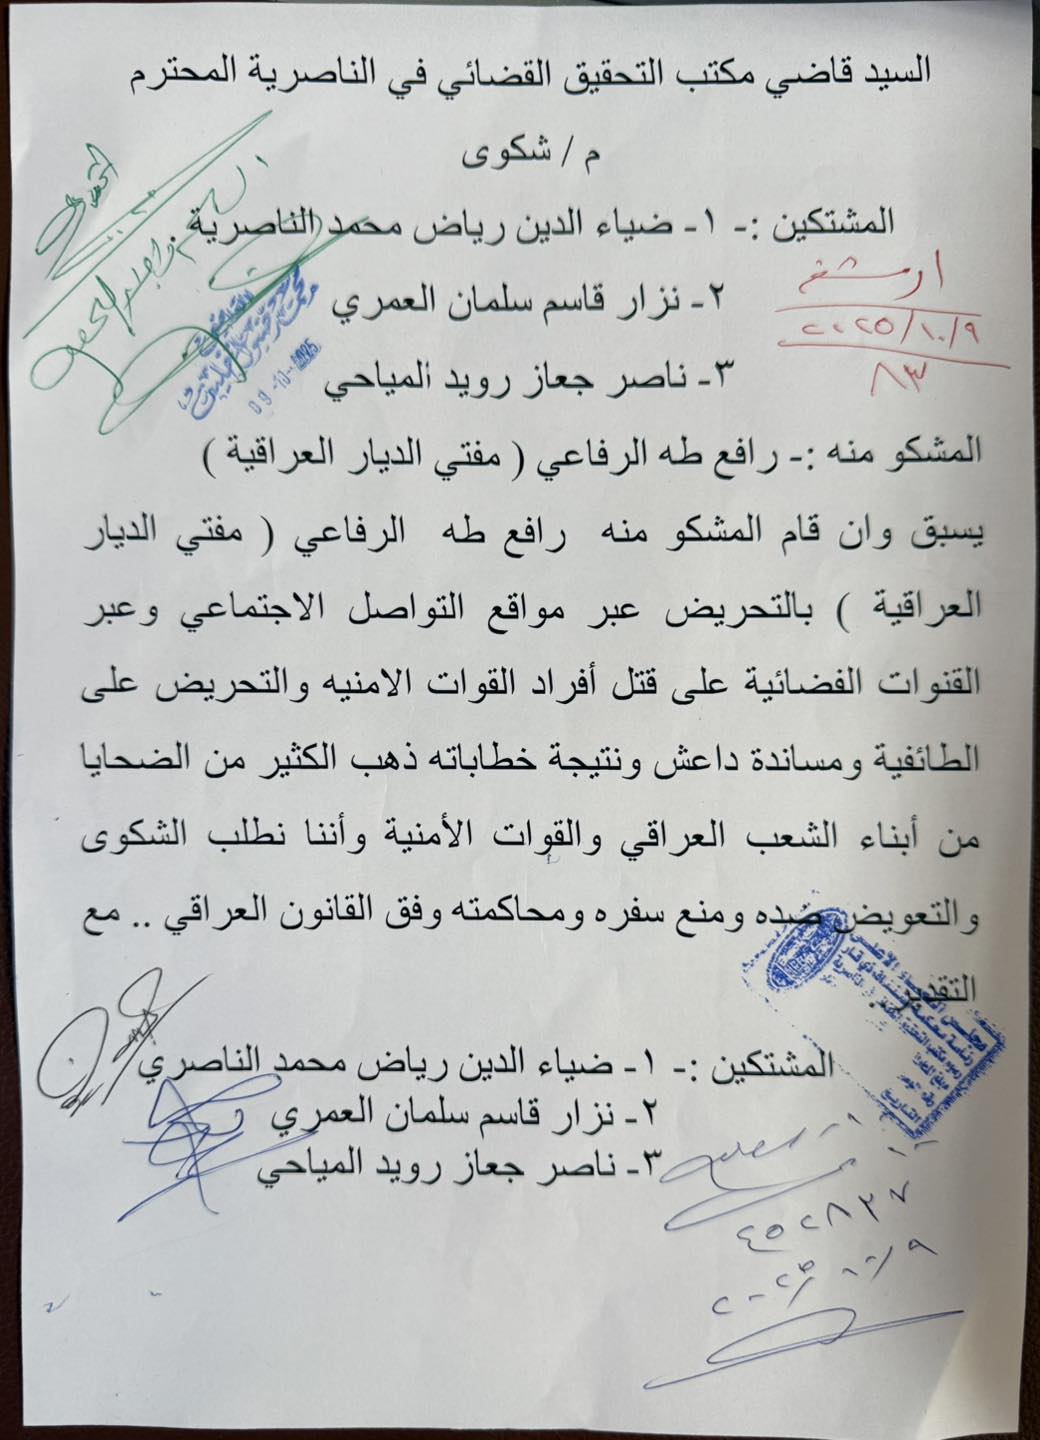 السيد قاضي مكتب التحقيق القضائي في الناصرية المحترم
م / شكوى
المشتكين :- ١- ضياء الدين رياض محمد الناصرية .
٢- نزار قاسم سلمان العمري
٣- ناصر جعاز رويد المياحي
٢٠٢٥/١٠/٩
٨٣
09-10-2025
المشكو منه :- رافع طه الرفاعي ( مفتي الديار العراقية )
يسبق وان قام المشكو منه رافع طه الرفاعي ( مفتي الديار
العراقية ) بالتحريض عبر مواقع التواصل الاجتماعي وعبر
القنوات الفضائية على قتل أفراد القوات الامنيه والتحريض على
الطائفية ومساندة داعش ونتيجة خطاباته ذهب الكثير من الضحايا
من أبناء الشعب العراقي والقوات الأمنية وأننا نطلب الشكوى
والتعويض ضده ومنع سفره ومحاكمته وفق القانون العراقي .. مع
التقدير ..
المشتكين :- ١- ضياء الدين رياض محمد الناصري
٢- نزار قاسم سلمان العمري
٣- ناصر جعاز رويد المياحي